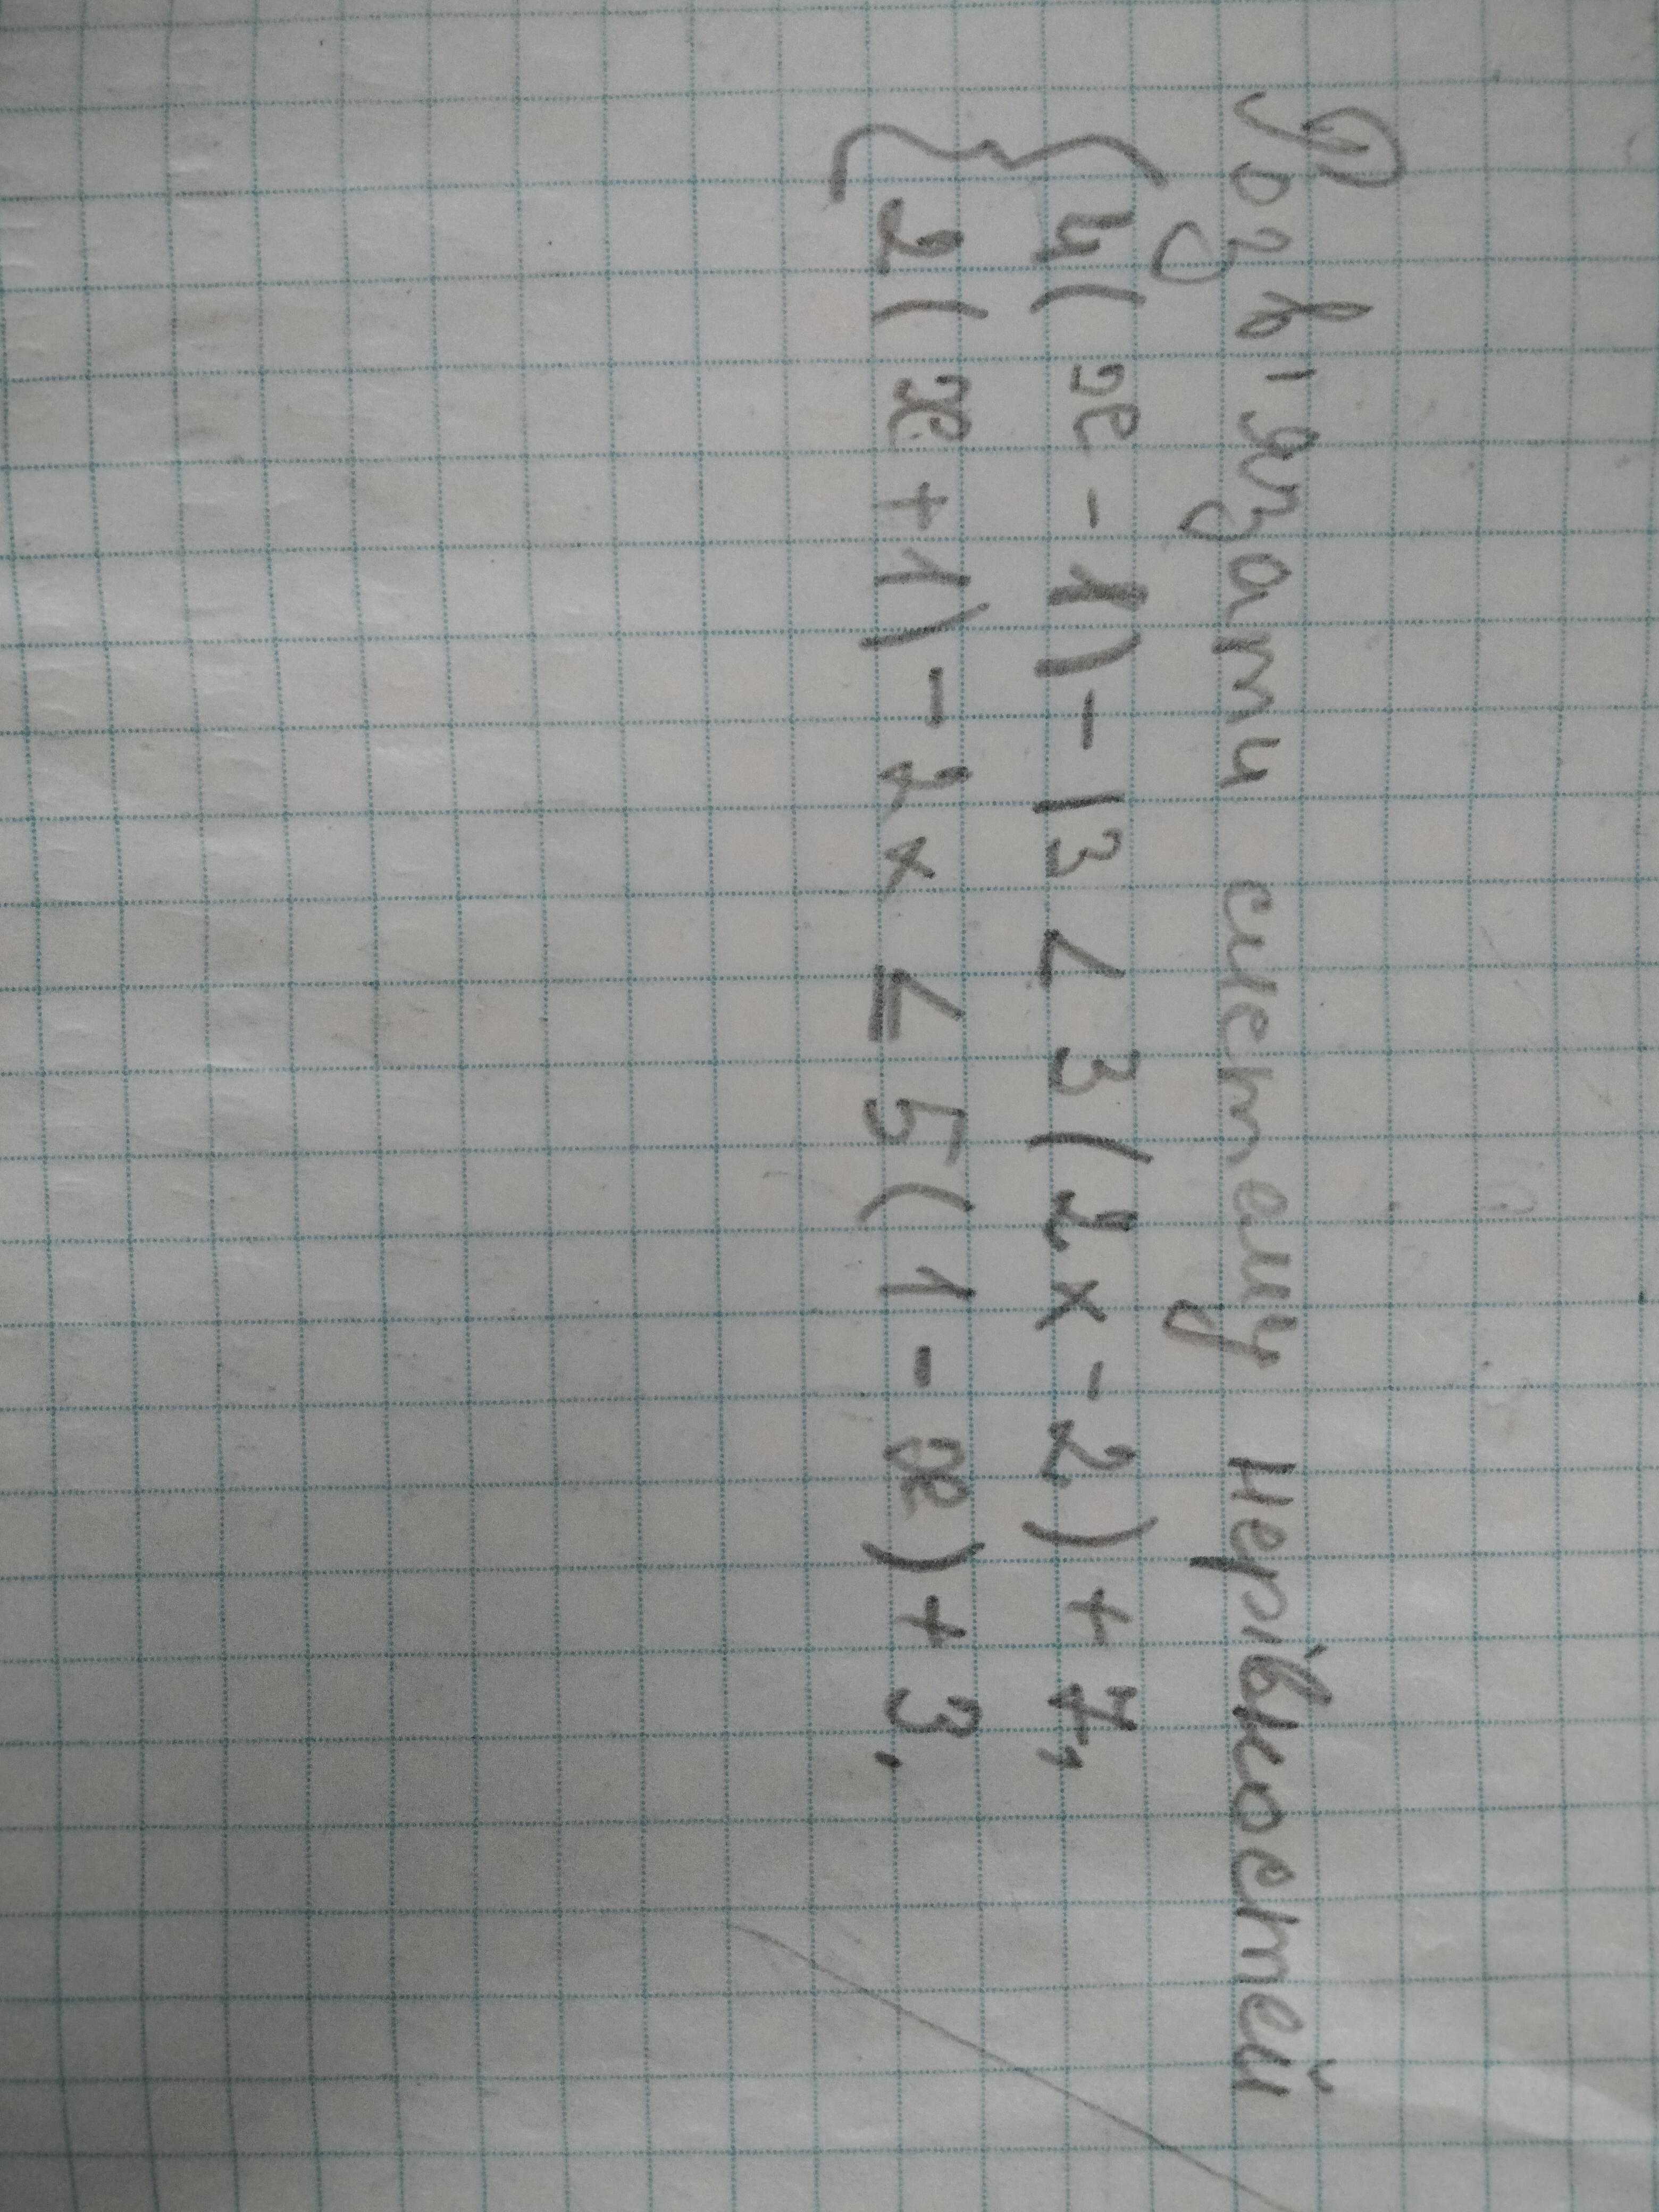 Розв'язати систему нерівностей
{ 4(x - 1) - 13 < 3(2x - 2) + 7,
2(x + 1) - 2x ≤ 5(1 - x) + 3.